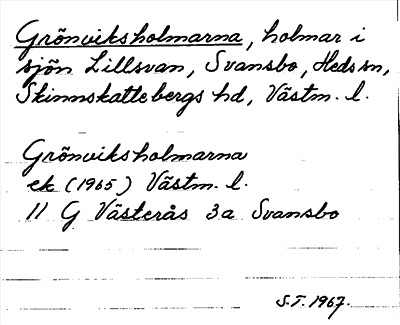 Grönviksholmarna, holmar i
sjön Lillsvan, Svansbo, Heds sn,
Skinnskattebergs hd, Västm. l.
Grönviksholmarna
ek (1965) Västm. l.
11 G Västerås 3a Svansbo
S.T. 1967.